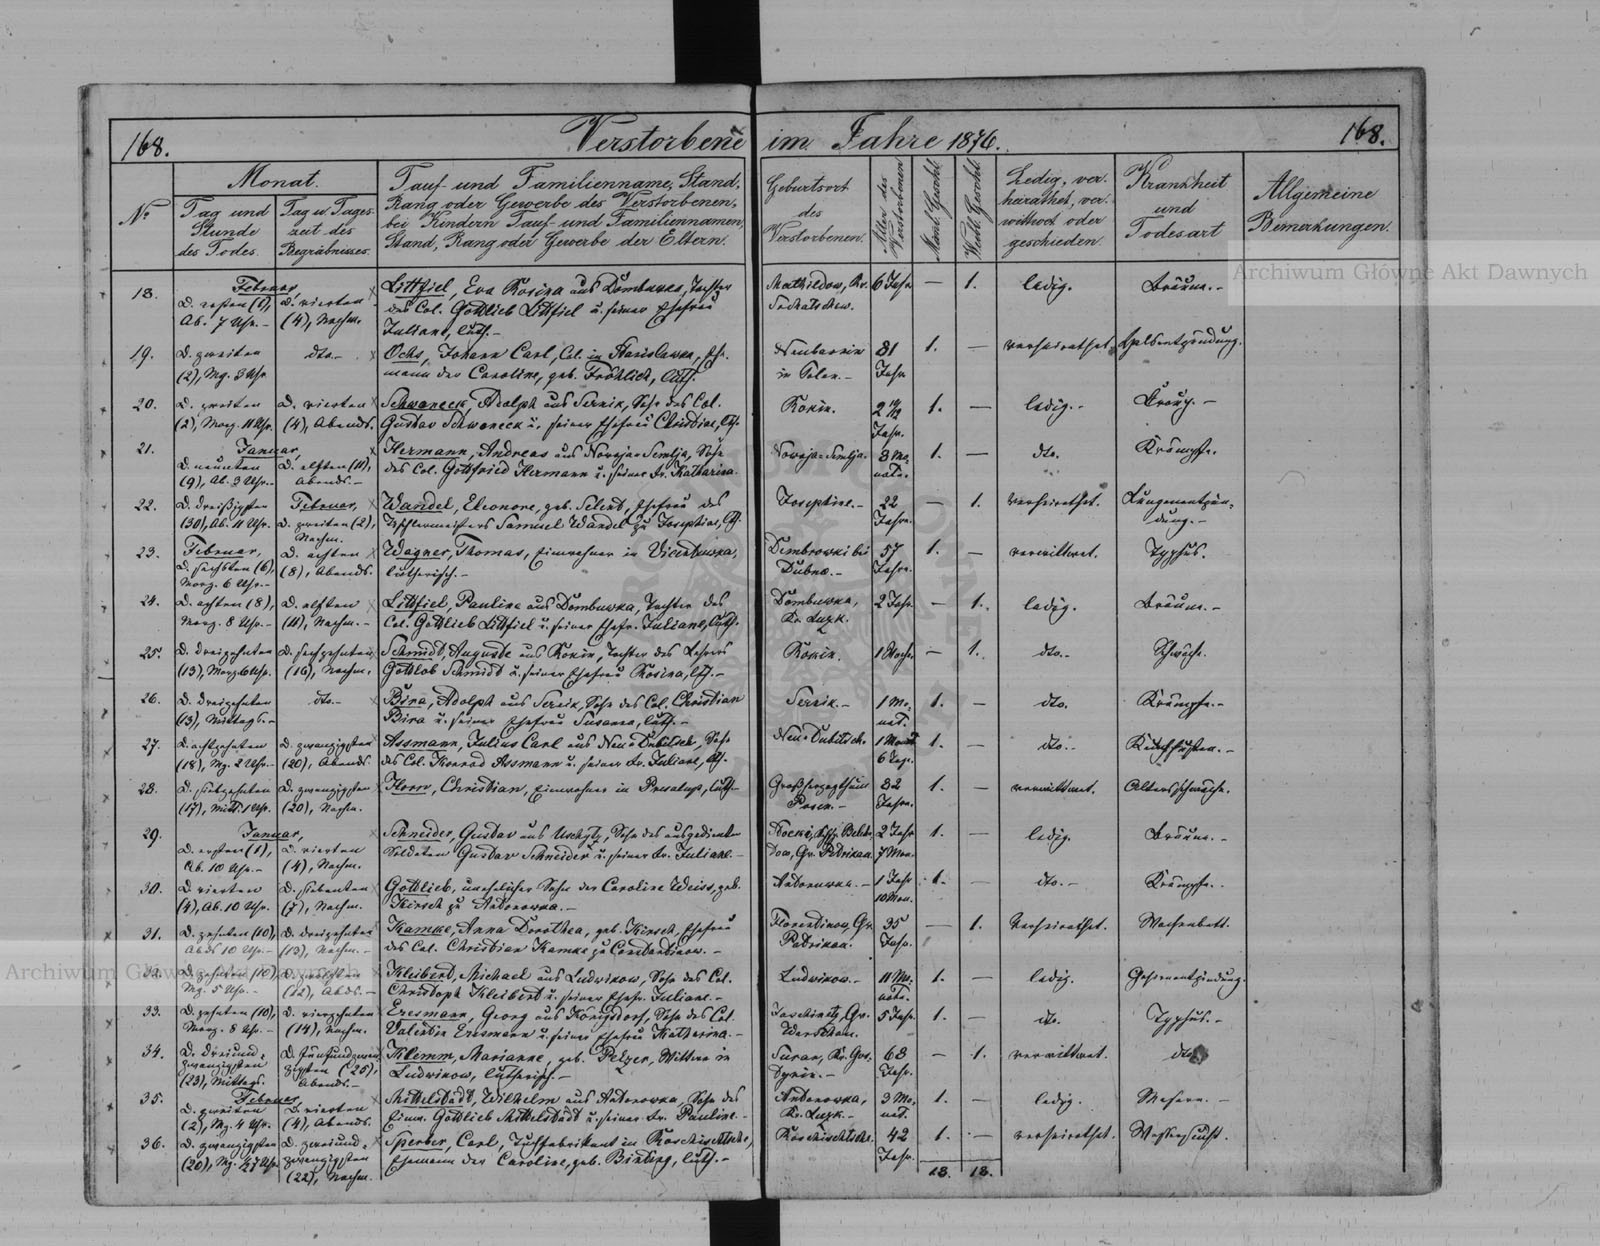 168.
Verstorbene im Jahre 1876.
168.
No
Monat.
Tag und Stunde des Todes.
Tag u. Tageszeit des Begräbnisses.
Tauf- und Familienname, Stand,
Rang oder Gewerbe des Verstorbenen,
bei Kindern Tauf- und Familiennamen,
Stand, Rang oder Gewerbe der Eltern.
Geburtsort
des
Verstorbenen.
Alter des Verstorbenen
Männl. Geschl.
Weibl. Geschl.
Ledig, ver-
heirathet, ver-
wittwet oder
geschieden.
Krankheit
und
Todesart
Allgemeine
Bemerkungen.
Archiwum Główne Akt Dawnych
18. Februar,
D. ersten (1), D. vierten Littfiel, Eva Rosina aus Dombuwka, Tochter 6 Jahr — 1. ledig. Bräune.-
Ab. 7 Uhr.- (4), Nachm. des Col. Gottlieb Littfiel u. seiner Ehefrau
Juliane, luth.-
19. D. zweiten dto.- Ochs, Johann Carl, Col. in Stanislawka, Ehe- 81 1. — verheirathet. Halsentzündung.
(2), Mg. 3 Uhr mann der Caroline, geb. Fröhlich, luth. in Polen.- Jahr
20. D. zweiten D. vierten Schwaneck, Adolph aus Sernik, Sohn des Col. Rokin. 1. — ledig.-
(2), Morg. 11 Uhr. (4), Abends. Gustav Schwaneck u. seiner Ehefrau Christine, lth. Jahr.
21. Januar,
D. neunten D. elften (11), Hermann, Andreas aus Nowaja-Semlja, Sohn Nowaja-Semlja. 8 Mo- 1. — dto. Krämpfe.
(9), Ab. 3 Uhr.- Abends.- des Col. Gottfried Hermann u. seiner Fr. Katharina. nate.
22. D. dreißigsten Februar, Wandel, Eleonore, geb. Selent, Ehefrau des Josephine.- 22 — 1. verheirathet. Lungenentzün-
(30), Ab. 11 Uhr. D. zweiten (2), Tischlermeisters Samuel Wandel zu Josephine, lth. Jahre. dung.-
Nachm.
23. Februar, D. achten Wagner, Thomas, Einwohner in 57 1. — verwittwet. Typhus.
D. sechsten (6), (8), Abends. lutherisch.- Dubno.- Jahre.
Morg. 6 Uhr.-
24. D. achten (8), D. elften Littfiel, Pauline aus Dombuwka, Tochter des Dombuwka, 2 Jahr. — 1. ledig. Bräune.-
Morg. 8 Uhr.- (11), Nachm.- Col. Gottlieb Littfiel u. seiner Ehefr. Juliane, luth. Kr. Luzk.
25. D. dreizehnten D. sechzehnten Schmidt, Auguste aus Rokin, Tochter des Lehrers Rokin. 1 Woche — 1. dto.- Schwäche.
(13), Morg. 6 Uhr. (16), Nachm. Gottlob Schmidt u. seiner Ehefrau Rosina, lth.-
26. D. dreizehnten dto.- Bira, Adolph aus Sernik, Sohn des Col. Christian Sernik.- 1 Mo- 1. — dto. Krämpfe.-
(13), Mittags.- Bira u. seiner Ehefrau Susanna, luth.- nat.
27. D. achtzehnten D. zwanzigsten Assmann, Julius Carl aus Neu-Dubitsch, Sohn Neu-Dubitsch. 1 Monat 1. — dto.- Keuchhusten.-
(18), Mg. 2 Uhr.- (20), Abends des Col. Konrad Assmann u. seiner Fr. Juliane, lth. 6 Tage.
28. D. siebzehnten D. zwanzigsten Horn, Christian, Einwohner in luth.- Großherzogthum 82 1. — verwittwet. Altersschwäche.
(17), Mitt. 1 Uhr. (20), Nachm. Posen.- Jahre.
29. Januar,
D. ersten (1), D. vierten Schneider, Gustav aus Sohn des ausgedienten 2 Jahr 1. — ledig. Bräune.-
Ab. 10 Uhr.- (4), Nachm. Soldaten Gustav Schneider u. seiner Fr. Juliane.- Gv. Petrikau. 7 Mon.
30. D. vierten D. siebenten Gottlieb, unehelicher Sohn der Caroline Weiss, geb. Antonuwka.- 1 Jahr 1. — dto.- Krämpfe.
(4), Ab. 10 Uhr. (7), Nachm. Kirsch zu Antonowka.- 10 Mon.
31. D. zehnten (10), D. dreizehnten Kamke, Anna Dorothea, geb. Kirsch, Ehefrau Florentinow, Gv. 35 — 1. Verheirathet. Wochenbett.
Abds 10 Uhr.- (13), Nachm.- des Col. Christian Kamke zu Constantinow.- Petrikau. Jahr.
Archiwum Główne Akt Dawnych
32. D. zehnten (10), Kleibert, Michael aus Ludwikow, Sohn des Col. Ludwikow.- 11 Mo- 1. — ledig. Gehirnentzündung.
Mg. 5 Uhr.- (12), Abds.- Christoph Kleibert u. seiner Ehefr. Juliane.- nate.
33. D. zehnten (10), D. vierzehnten Eresmann, Georg aus Königsdorf, Sohn des Col. Gv. 5 Jahr. 1. — dto. Typhus.-
Morg. 8 Uhr.- (14), Nachm. Valentin Eresmann u. seiner Ehefrau Katharina.- Warschau.
34. D. dreiund- D. Fünfundzwan- Klemm, Marianne, geb. Pelzer, Wittwe in 68 — 1. verwittwet. dto.
zwanzigsten zigsten (25), Ludwikow, lutherisch.- Jahr.
(23), Mittags. Abends.-
35. Februar,
D. zweiten D. vierten Mittelstädt, Wilhelm aus Antonowka, Sohn des Antonowka, 3 Mo- 1. — ledig. Masern.-
(2), Mg. 4 Uhr. (4), Abends. Einw. Gottlieb Mittelstädt u. seiner Fr. Pauline.- Kr. Luzk.- nat.
36. D. zwanzigsten D. zweiund- Sperber, Carl, Tuchfabrikant in Roschischtsche, Roschischtsche. 42 1. — verheirathet. Wassersucht.
(20), Mg. zwanzigsten Ehemann der Caroline, geb. Binting, luth.- Jahr.
(22), Nachm.
18. 18.